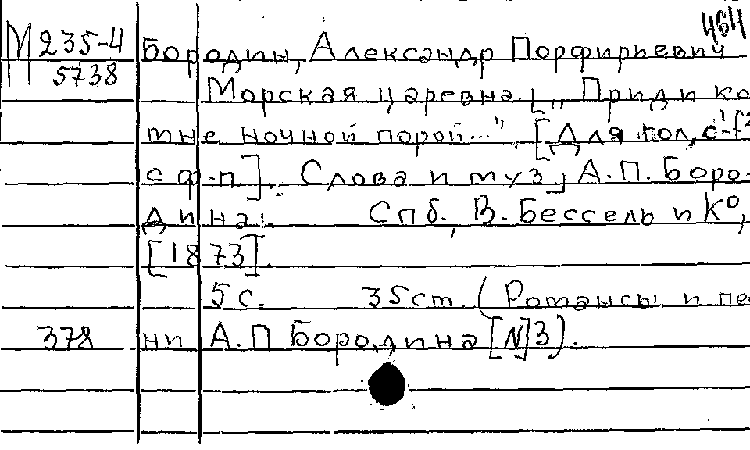 464
М 235-4 Бородин, Александр Порфирьевич
5738
Морская царевна. „Приди ко
мне ночной порой..." [Для гол. c¹-f²
с ф-п]. Слова и муз. А.П. Боро-
дина. Спб., В. Бессель и К⁰,
[1873].
5 с. 35 ст. (Романсы и пес
378 ни А.П Бородина [N]3).